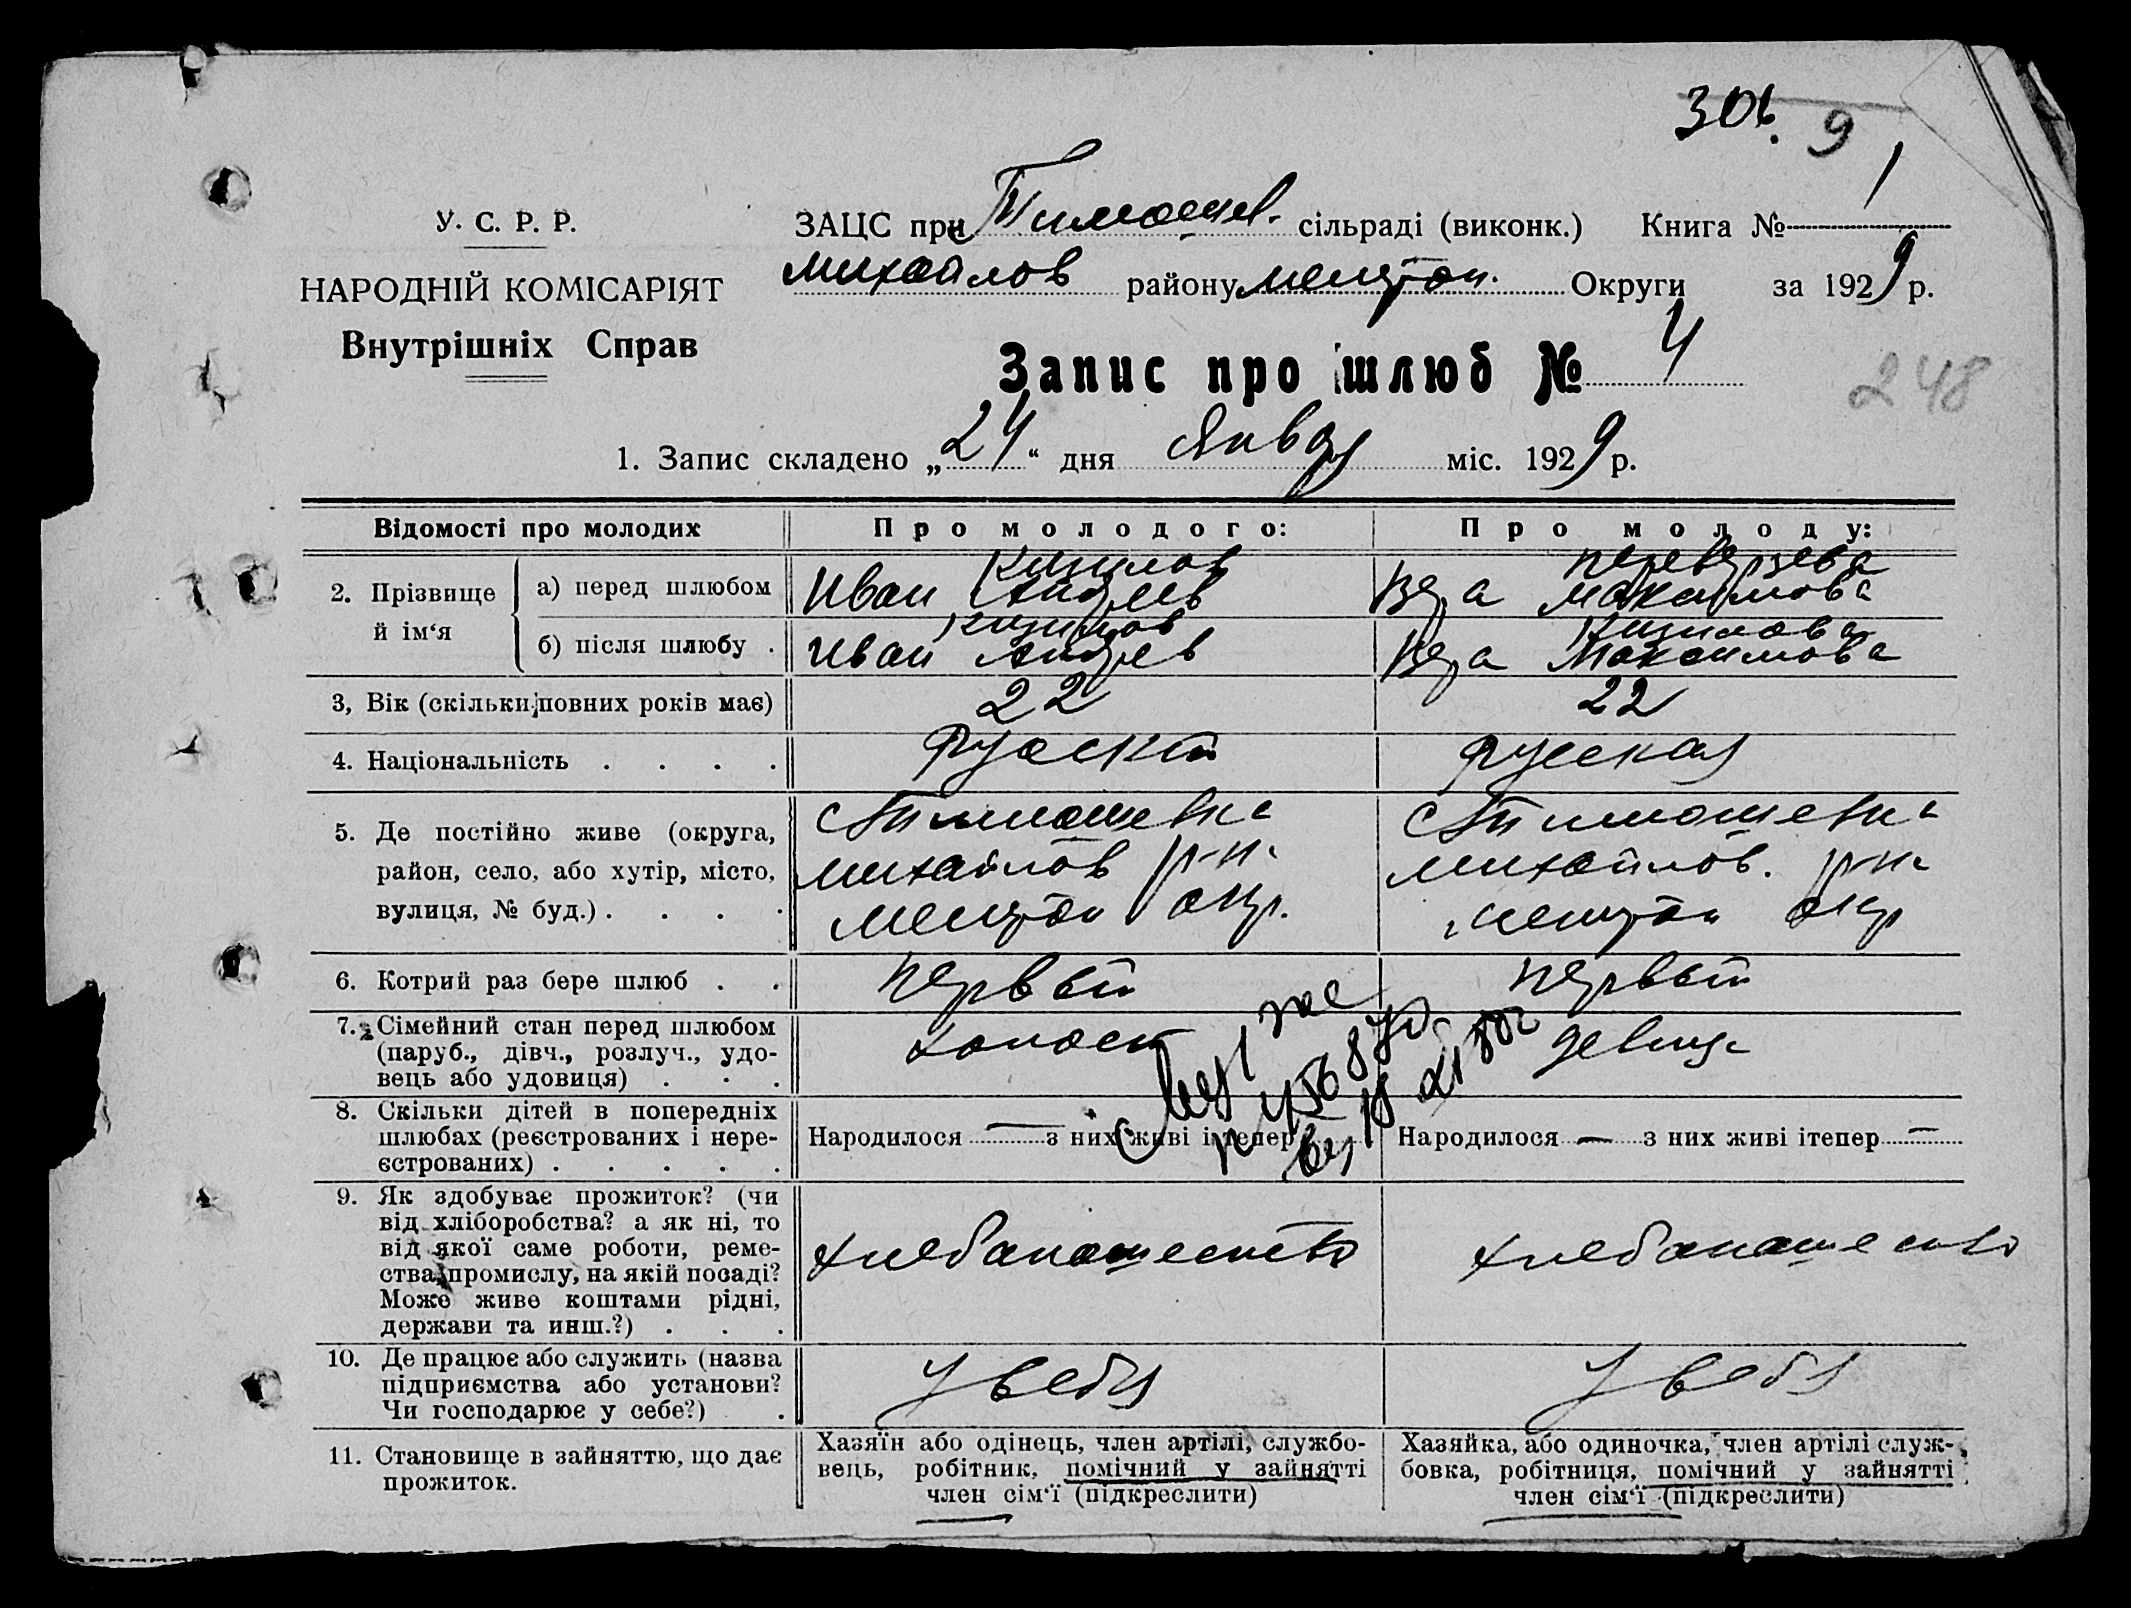 30б. 9
У. С. Р. Р.
НАРОДНІЙ КОМІСАРІЯТ
Внутрішніх Справ
ЗАЦС при Тимошев. сільраді (виконк.) Книга № 1
Михайлов району Мелітоп. Округи за 1929 р.
Запис про шлюб № 4
248
1. Запис складено „24“ дня Января міс. 1929 р.
Відомості про молодих Про молодого: Про молоду:
2. Прізвище й ім‘я
а) перед шлюбом
Кизилов
Иван Андреев
Переверзева
Вера Максимова
б) після шлюбу .
Кизилов
Иван Андреев
Кизилова
Вера Максимова
3, Вік (скільки повних років має) 22 22
4. Національність . . . . Руский Руская
5. Де постійно живе (округа,
район, село, або хутір, місто,
вулиця, № буд.) . . . .
с Тимошевка
Михайлов р-на
Мелітоп окр.
с Тимошевка
Михайлов. р-на
Мелітоп окр
6. Котрий раз бере шлюб . . первый первый
7. Сімейний стан перед шлюбом
(паруб., дівч., розлуч., удо-
вець або удовиця) . . .
холост
девица
8. Скільки дітей в попередніх
шлюбах (реєстрованих і нере-
єстрованих) . . . . .
Народилося — з них живі і тепер
Народилося — з них живі ітепер —
9. Як здобуває прожиток? (чи
від хліборобства? а як ні, то
від якої саме роботи, реме-
ства, промислу, на якій посаді?
Може живе коштами рідні,
держави та инш.?) . . .
хлебапашество
хлебапашество
10. Де працює або служить (назва
підприємства або установи?
Чи господарює у себе?) .
У себя
У себя
11. Становище в зайняттю, що дає
прожиток.
Хазяїн або одінець, член артілі, службо-
вець, робітник, помічний у зайнятті
член сім‘ї (підкреслити)
Хазяйка, або одиночка, член артілі служ-
бовка, робітниця, помічний у зайнятті
член сім‘ї (підкреслити)